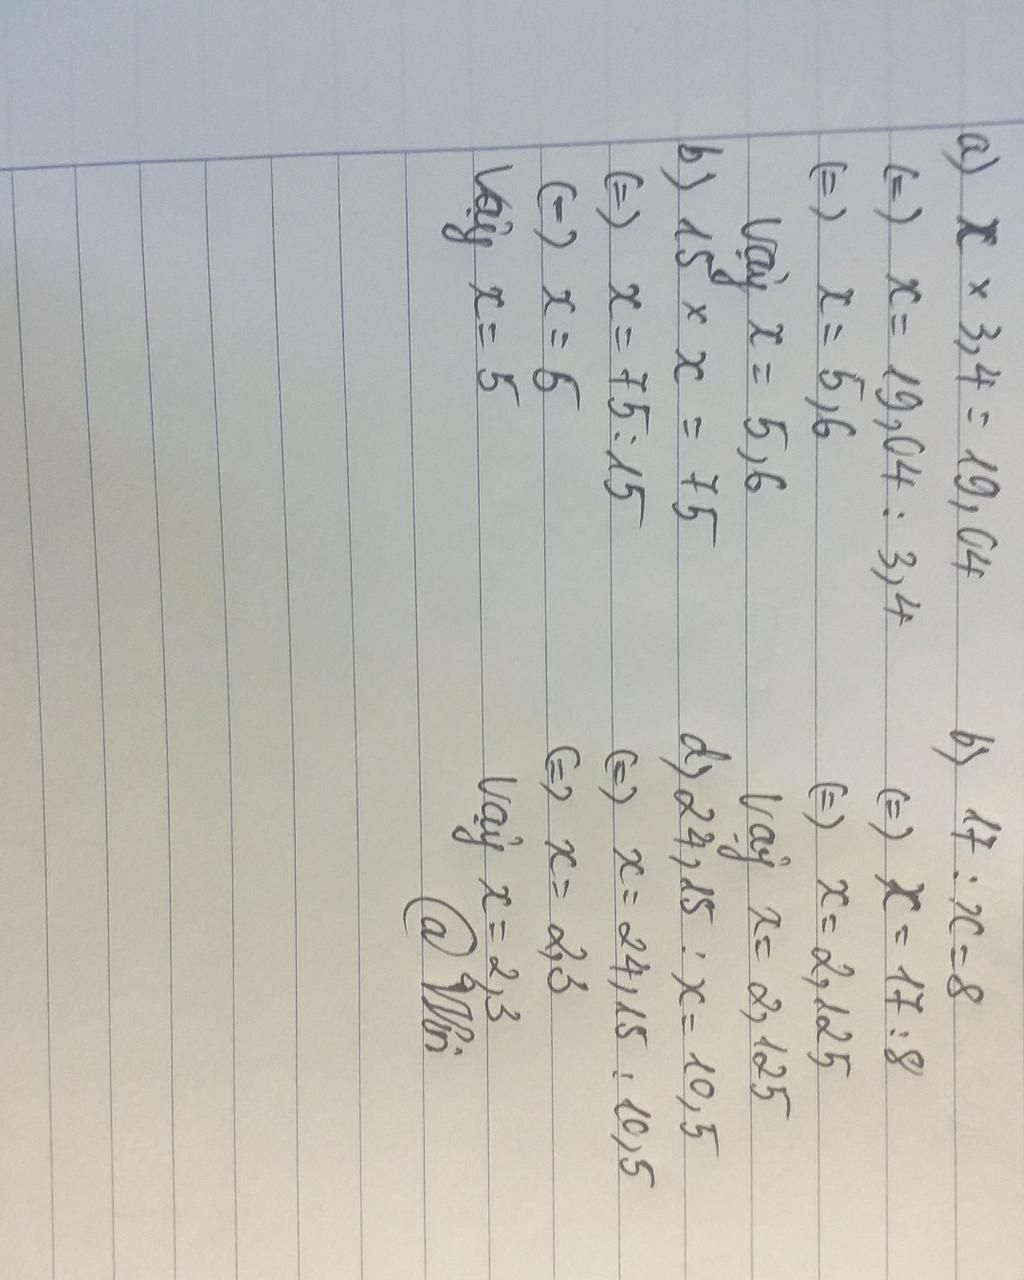 a) x × 3,4 = 19,04
(=) x = 19,04 : 3,4
(=) x = 5,6
Vậy x = 5,6
b) 15 × x = 75
(=) x = 75 : 15
(=) x = 5
Vậy x = 5
b) 17 : x = 8
(=) x = 17 : 8
(=) x = 2,125
Vậy x = 2,125
d) 24,15 : x = 10,5
(=) x = 24,15 : 10,5
(=) x = 2,3
Vậy x = 2,3